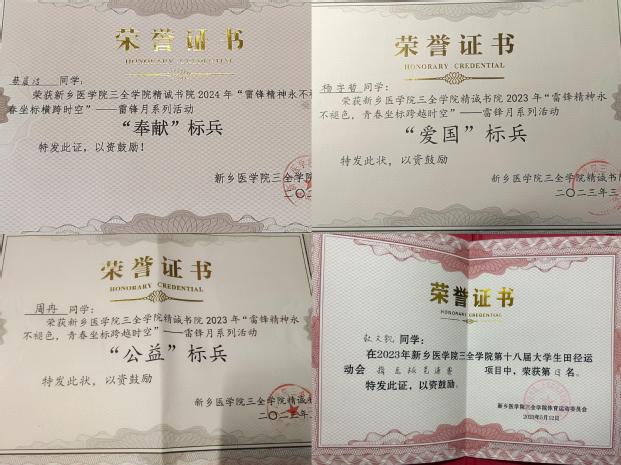 荣誉证书
HONORARY CREDENTIAL
同学：
荣获新乡医学院三全学院精诚书院2024年“雷锋精神永不
春坐标横跨时空”——雷锋月系列活动
“奉献”标兵
特发此证，以资鼓励！
新乡医学院三全学院
二〇二
荣誉证书
HONORARY CREDENTIAL
杨宇哲同学：
荣获新乡医学院三全学院精诚书院2023年“雷锋精神永
不褪色，青春坐标跨越时空”——雷锋月系列活动
“爱国”标兵
特发此状，以资鼓励
新乡医学院三全学院精诚书
二〇二三年三
荣誉证书
HONORARY CREDENTIAL
周冉同学：
荣获新乡医学院三全学院精诚书院2023年“雷锋精神永
不褪色，青春坐标跨越时空”——雷锋月系列活动
“公益”标兵
特发此状，以资鼓励
新乡医学院三全学院精诚
二〇二三年
荣誉证书
HONORARY CREDENTIAL
同学：
在2023年新乡医学院三全学院第十八届大学生田径运
动会 项目中，荣获第 名。
特发此证，以资鼓励。
新乡医学院三全学院体育运动委员会
2023年5月12日